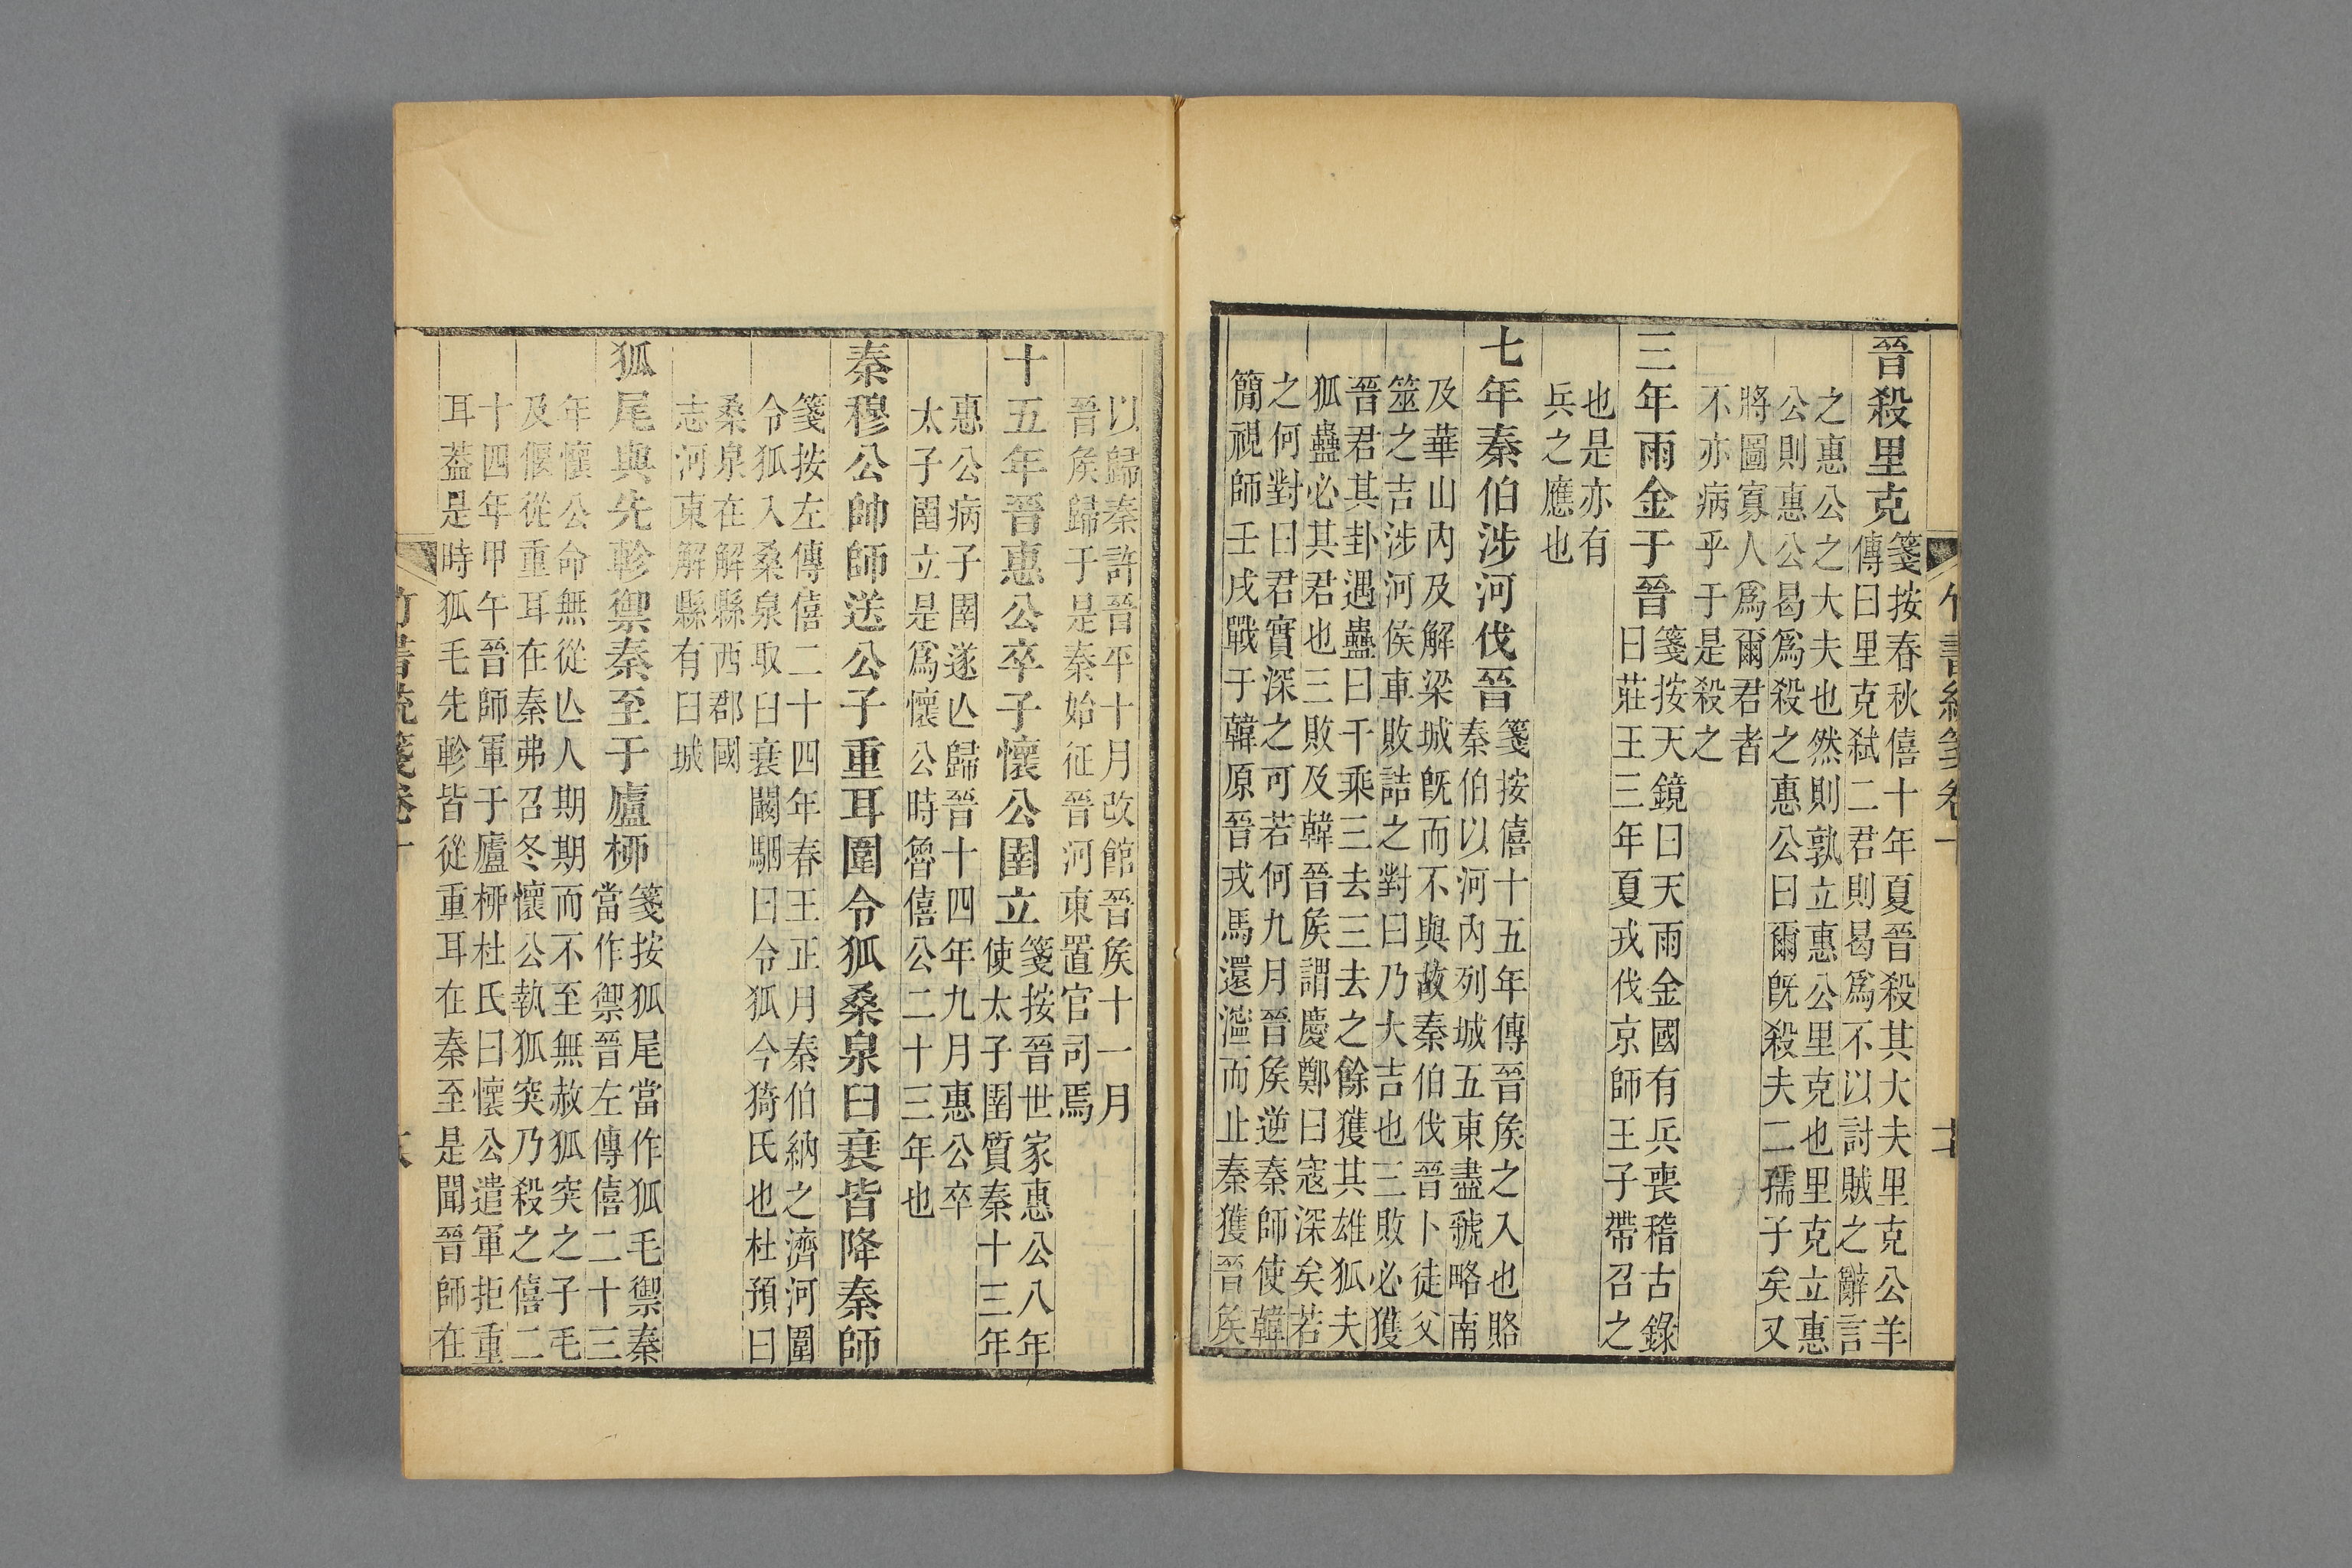 竹書統箋卷十
晉殺里克箋按春秋僖十年夏晉殺其大夫里克公羊
傳曰里克弒二君則曷爲不以討賊之辭言
之惠公之大夫也然則孰立惠公里克也里克立惠
公則惠公曷爲殺之惠公曰爾旣殺夫二孺子矣又
將圖寡人爲爾君者
不亦病乎于是殺之
三年雨金于晉箋按天鏡曰天雨金國有兵喪稽古錄
曰莊王三年夏戎伐京師王子帶召之
也是亦有
兵之應也
七年秦伯涉河伐晉箋按僖十五年傳晉矦之入也賂
秦伯以河內列城五東盡虢略南
及華山內及解梁城旣而不與故秦伯伐晉卜徒父
筮之吉涉河侯車敗詰之對曰乃大吉也三敗必獲
晉君其卦遇蠱曰千乘三去三去之餘獲其雄狐夫
狐蠱必其君也三敗及韓晉矦謂慶鄭曰寇深矣若
之何對曰君實深之可若何九月晉矦逆秦師使韓
簡視師壬戌戰于韓原晉戎馬還濘而止秦獲晉矦
以歸秦許晉平十月改館晉矦十一月
晉矦歸于是秦始征晉河東置官司焉
十五年晉惠公卒子懷公圉立箋按晉世家惠公八年
使太子圉質秦十三年
惠公病子圉遂亾歸晉十四年九月惠公卒
太子圉立是爲懷公時魯僖公二十三年也
秦穆公帥師送公子重耳圍令狐桑泉臼衰皆降秦師
箋按左傳僖二十四年春王正月秦伯納之濟河圍
令狐入桑泉取臼衰闞駰曰令狐今猗氏也杜預曰
桑泉在解縣西郡國
志河東解縣有臼城
狐尾與先軫禦秦至于廬桺箋按狐尾當作狐毛禦秦
當作禦晉左傳僖二十三
年懷公命無從亾人期期而不至無赦狐突之子毛
及偃從重耳在秦弗召冬懷公執狐突乃殺之僖二
十四年甲午晉師軍于廬桺杜氏曰懷公遣軍拒重
耳葢是時狐毛先軫皆從重耳在秦至是聞晉師在
竹書統箋卷十